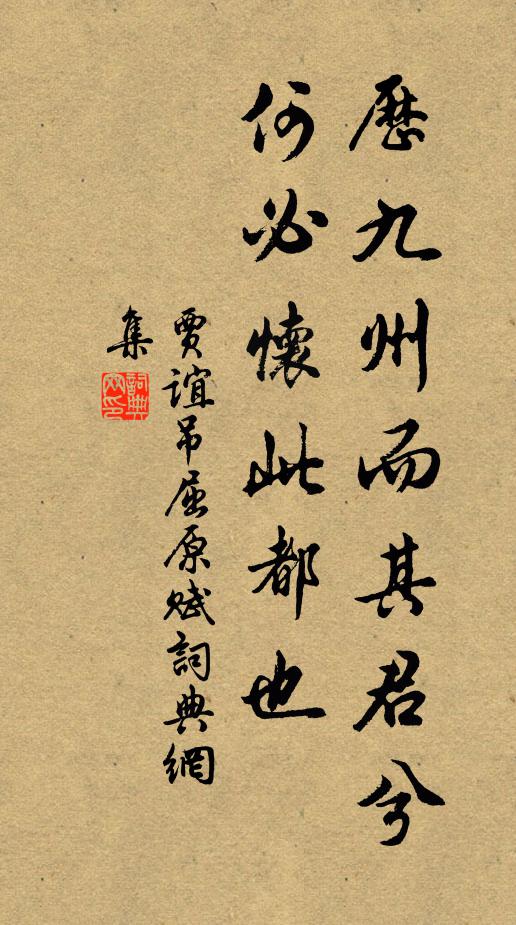 歷九州而其君兮
何必懷此都也
賈誼吊屈原賦詞典網
集
詞典網印